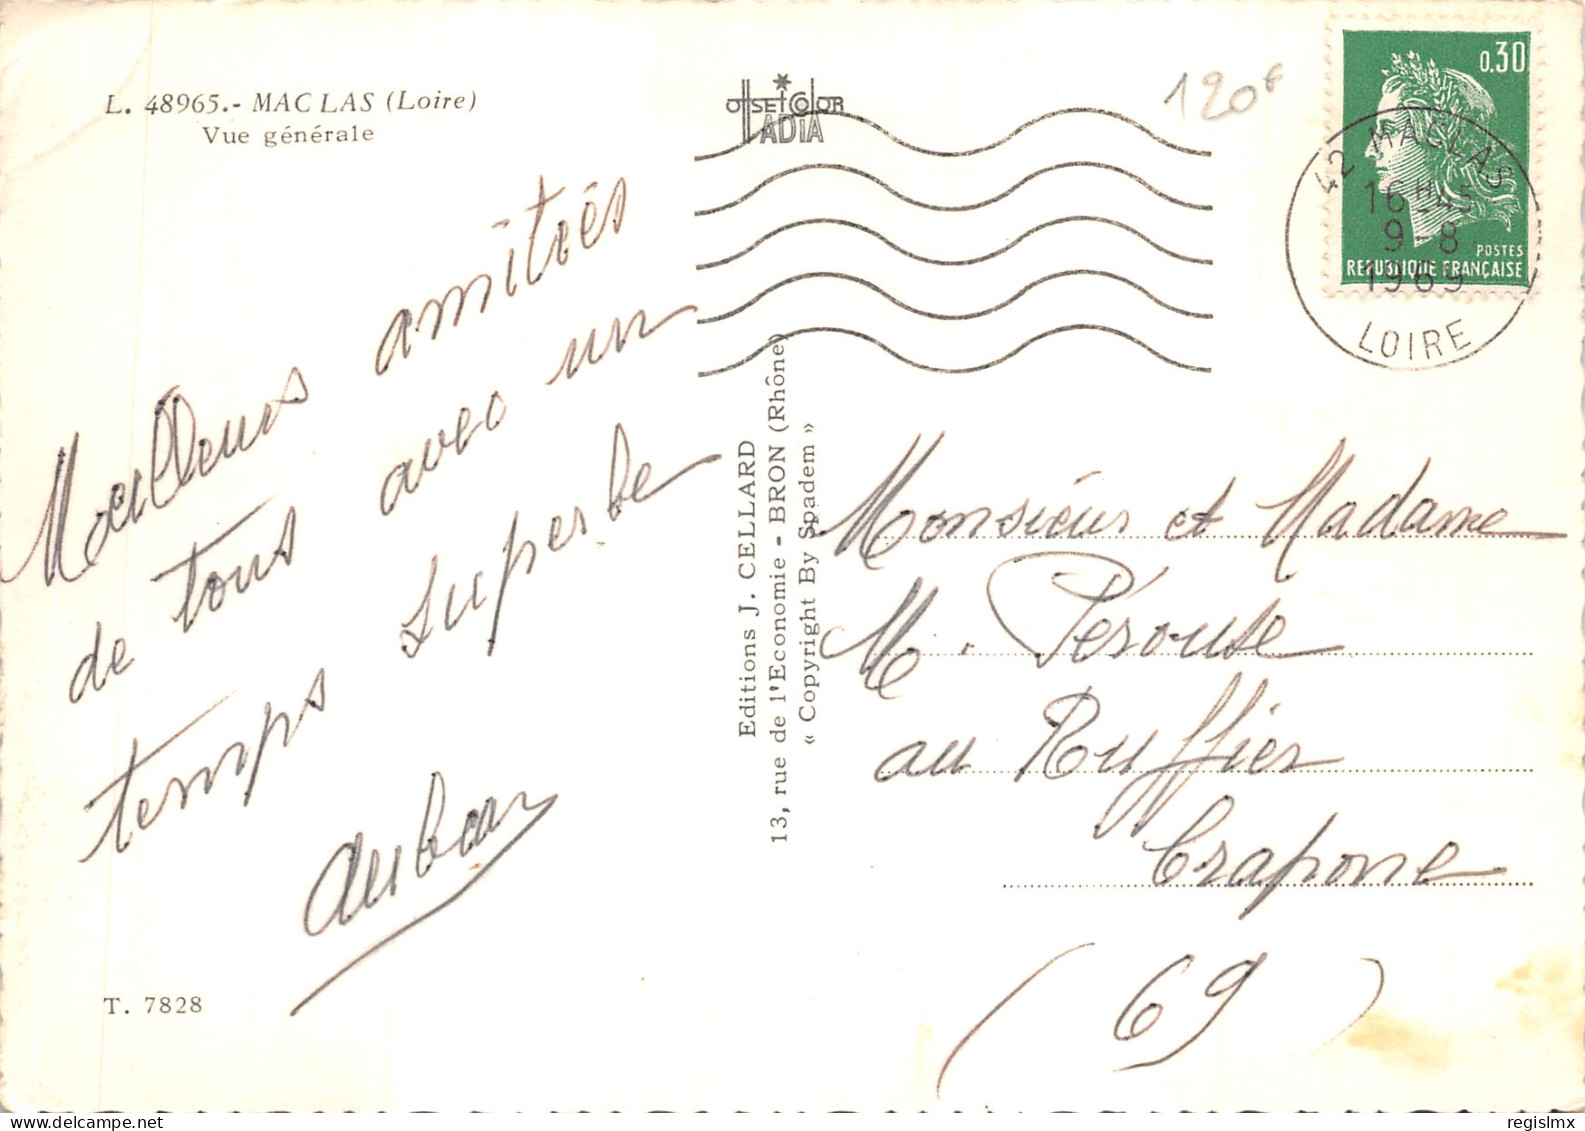 L. 48965.- MACLAS (Loire)
Vue générale
Meilleures amitiés
de tous avec un
temps superbe
T. 7828
offset color
IADIA
Editions J. CELLARD
13, rue de l'Economie - BRON (Rhône)
« Copyright By Spadem »
120F
0,30
POSTES
REPUBLIQUE FRANÇAISE
42 MACLAS
16H45
9-8
1969
LOIRE
Monsieur et Madame
M. Pérouse
au Ruffier
Craponne
(69)
delcampe.net
regislmx